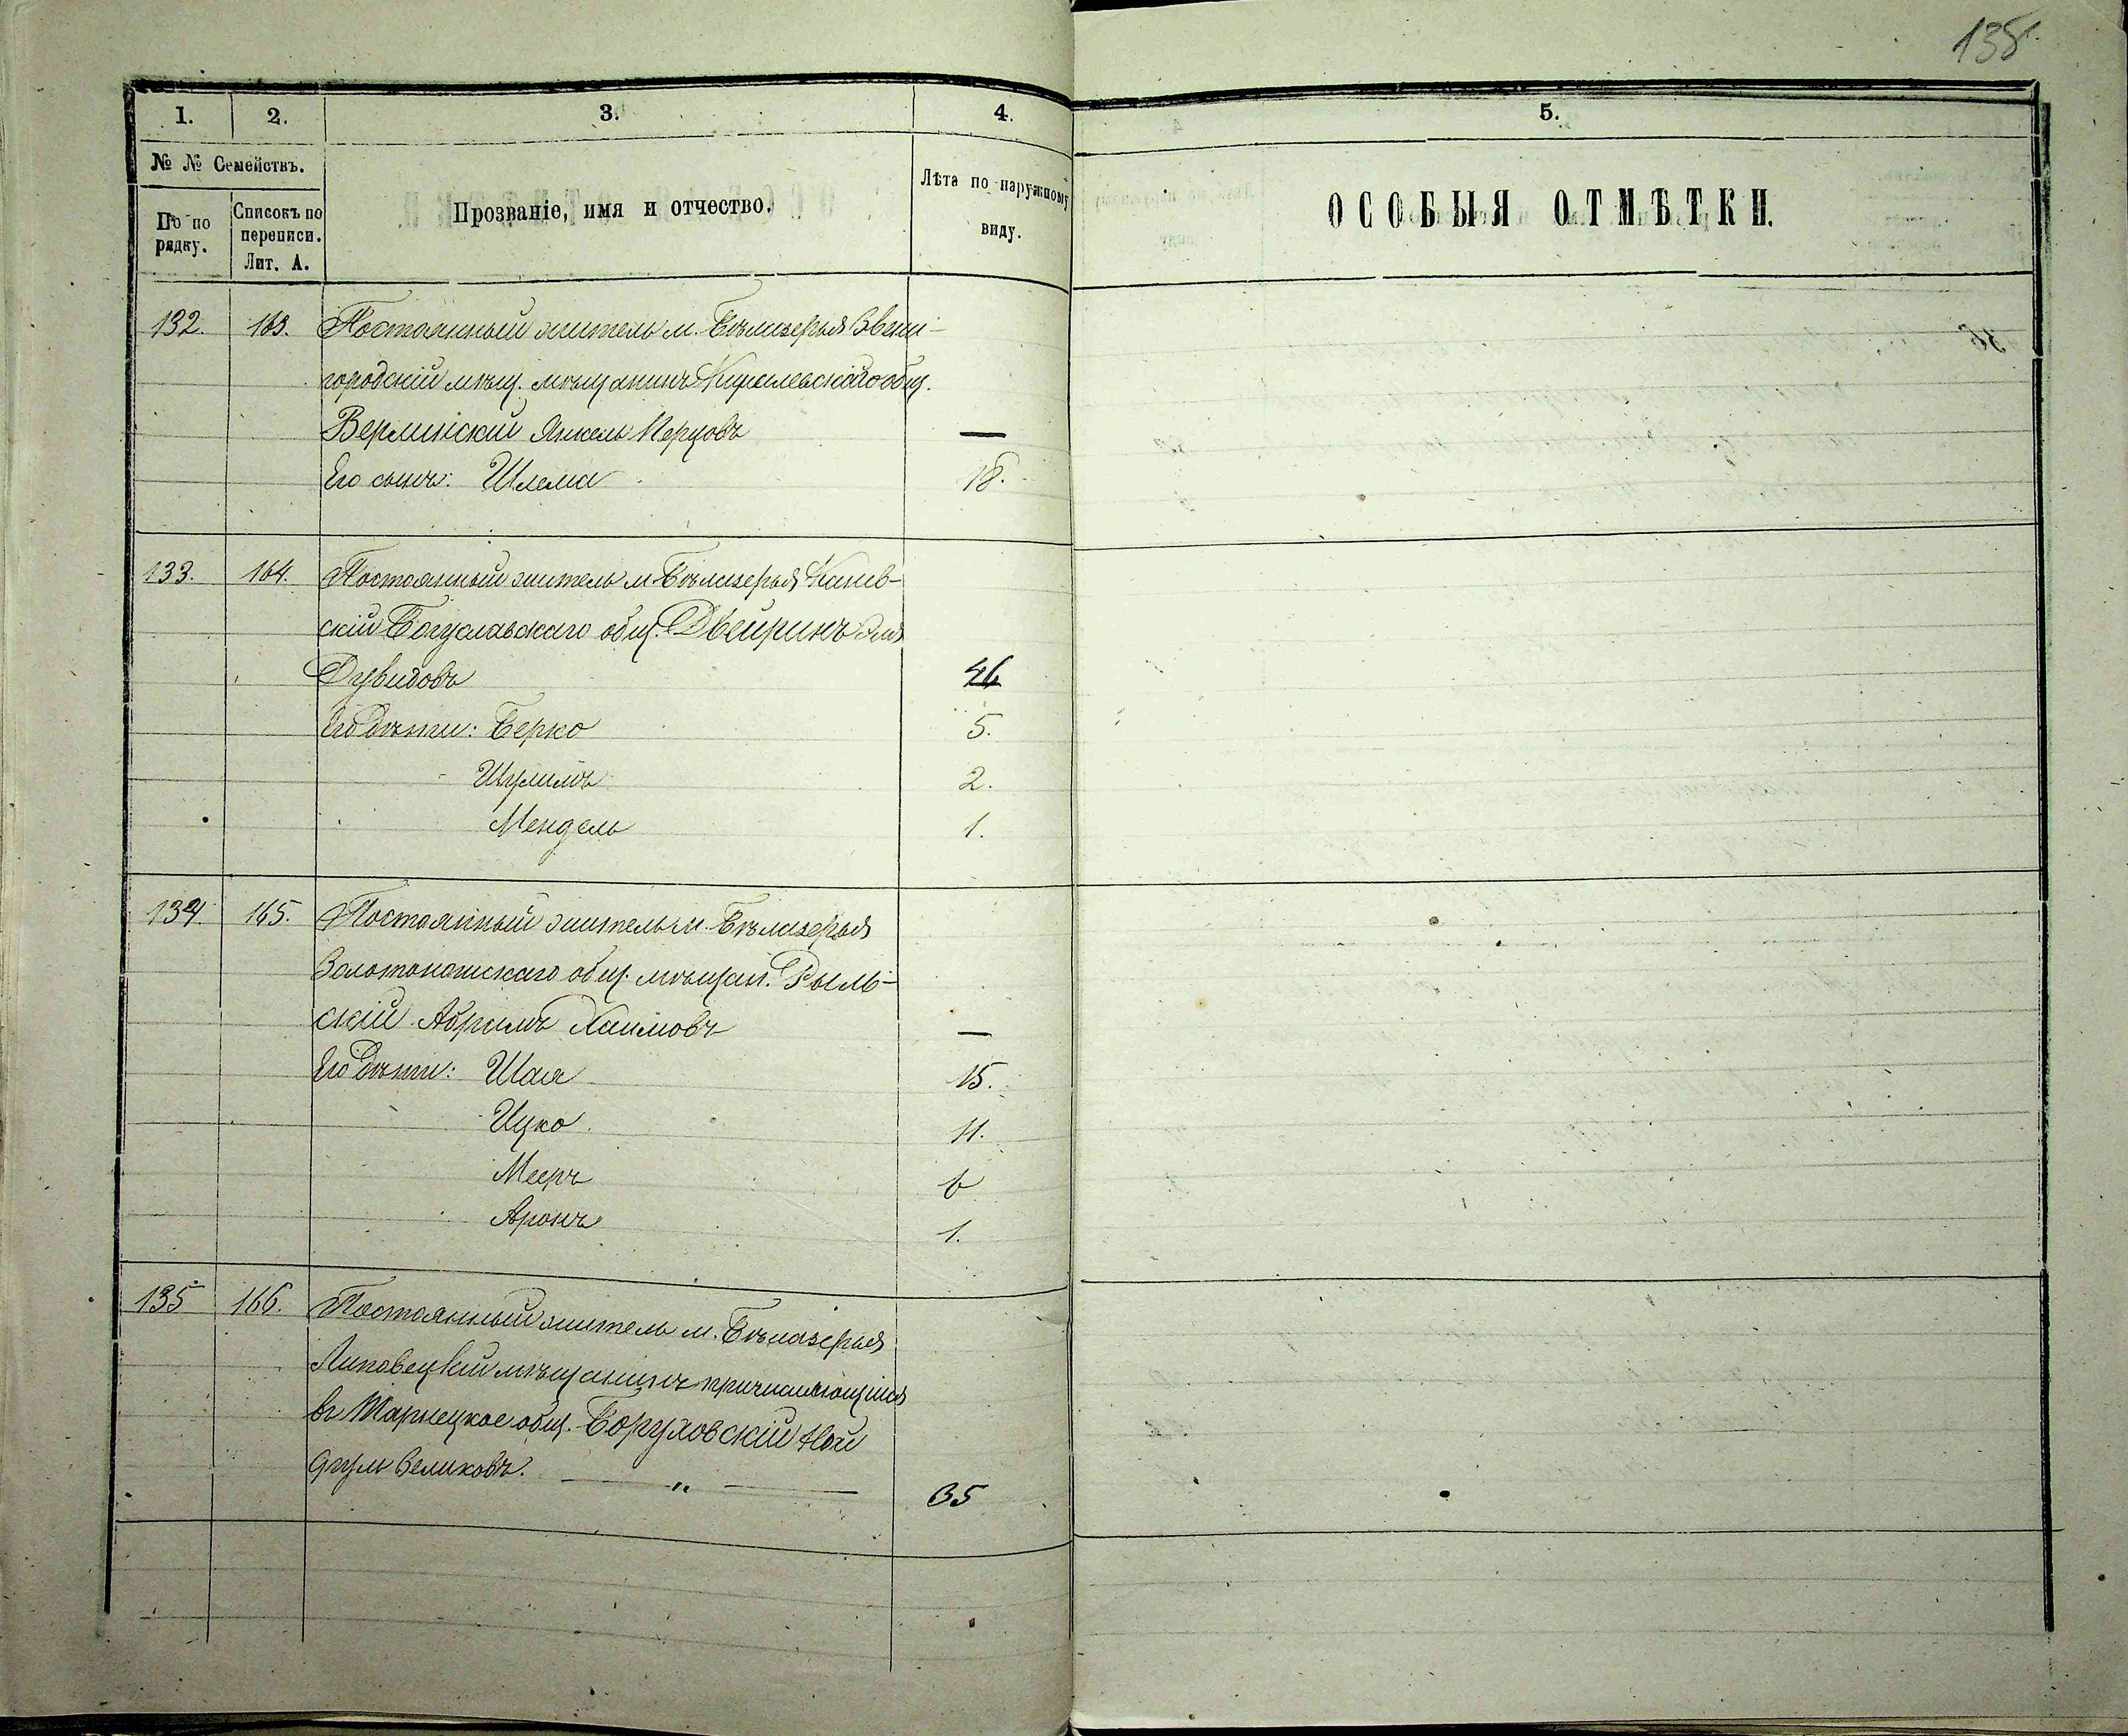 135.
1.
2.
3.
4.
5.
№ № Семействъ.
По по рядку.
Списокъ по переписи. Лит. А.
Прозваніе, имя и отчество.
Лѣта по наружному виду.
ОСОБЫЯ ОТМѢТКИ.
132. 163. Постоянный житель м. Бѣлизерья Звени-
городскій мѣщ. мѣщанинъ общ.
Верлинскій Янкель Перцовъ —
Его сынъ: Шлема 18.
133. 164. Постоянный житель м. Бѣлизерья Канев-
скій Богуславскаго общ. Двейринъ Эля
Дувидовъ 46
Его дѣти: Берко 5.
Шулимъ 2.
Мендель 1.
134 165. Постоянный житель м. Бѣлизерья
Золотоношскаго общ. мѣщан. Рыль-
скій Абрамъ Хаимовъ —
Его дѣти: Шая 15.
Ицко 11.
Мееръ 6
Аронъ 1.
135 166. Постоянный житель м. Бѣлазерья
Липовецкій мѣщанинъ причисляющійся
въ общ. Боруховскій
Великовъ. — „ — 35